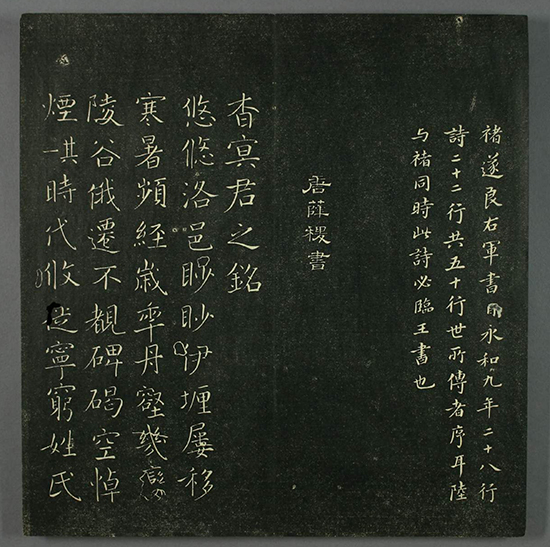 褚遂良右軍書目永和九年二十八行
詩二十二行共五十行世所傳者序耳陸
与褚同時此詩必臨王書也
唐薛稷書
杳冥君之銘
悠悠洛邑眇眇伊壥屢移
寒暑頻經歲年丹壑幾變
陵谷俄遷不覩碑碣空悼
煙時代攸徙寧窮姓氏